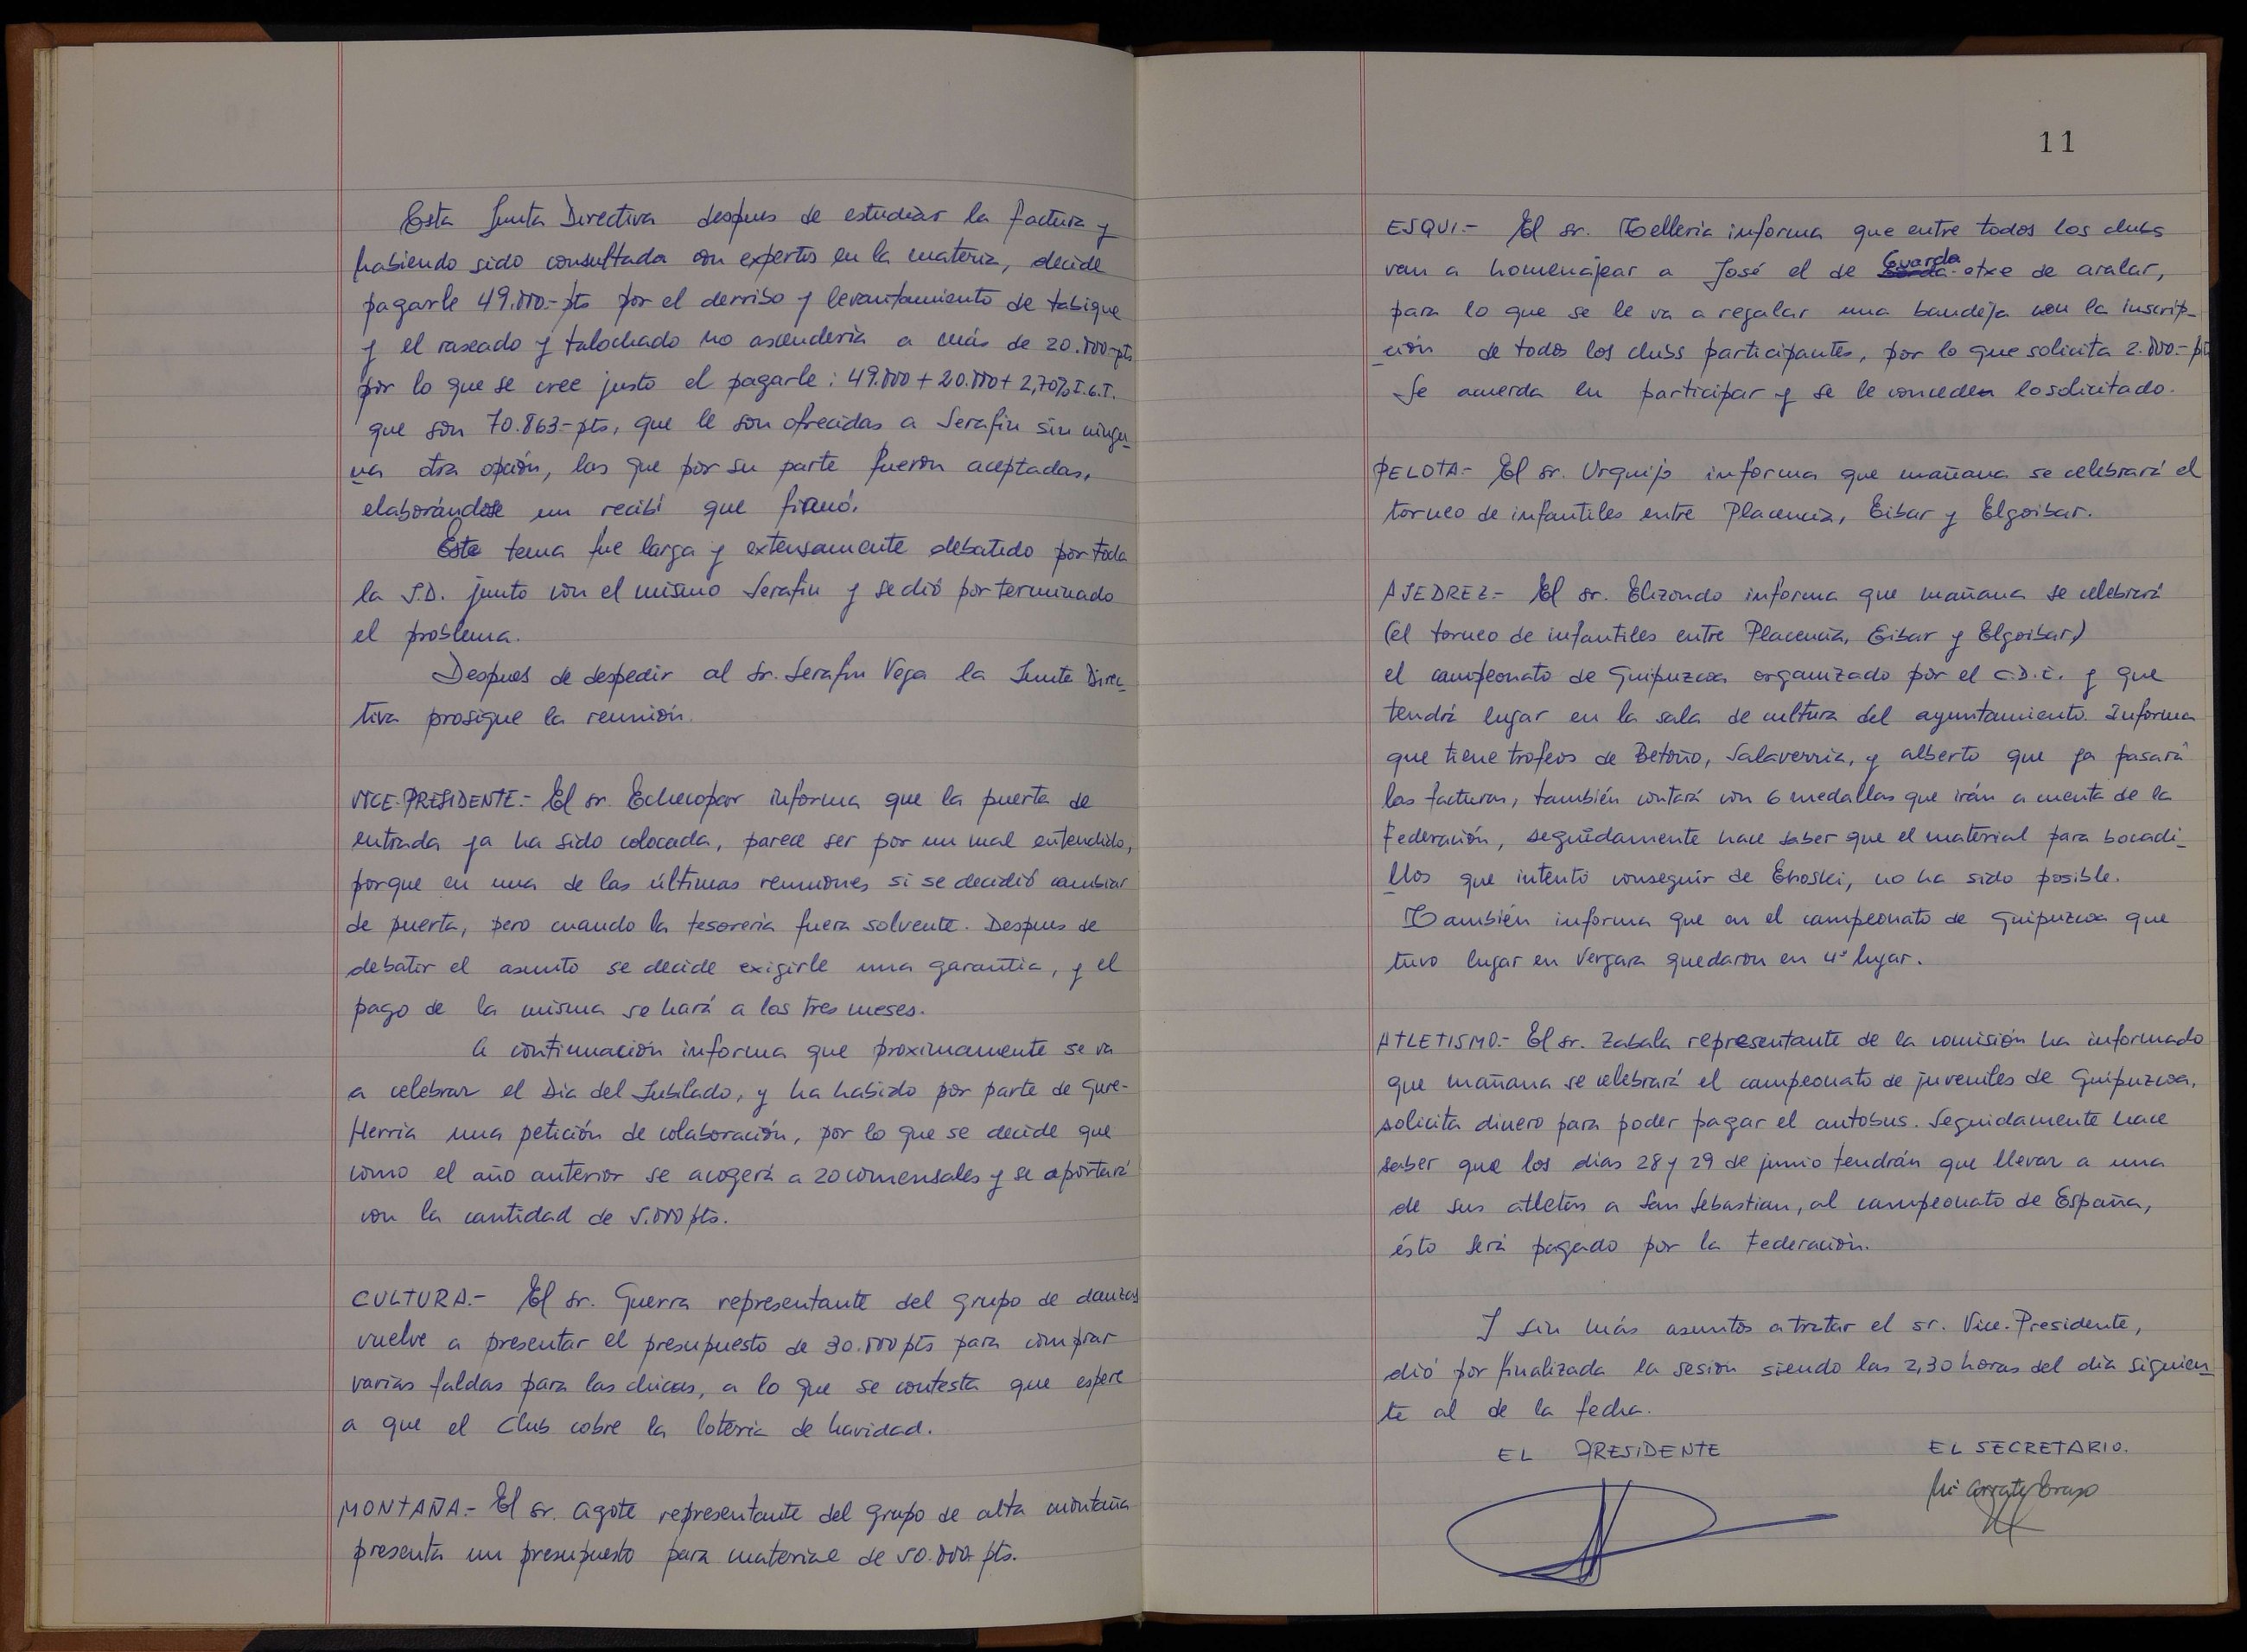 Esta Junta Directiva despues de estudiar la factura y
habiendo sido consultada con expertos en la materia, decide
pagarle 49.000.-pts por el derribo y levantamiento de tabique
y el raseado y talochado no ascenderia a más de 20.000-pts
por lo que se cree justo el pagarle: 49.000 + 20.000 + 2,70% I.G.T.
que son 70.863-pts, que le son ofrecidas a Serafin sin ningu-
na otra opción, las que por su parte fueron aceptadas,
elaborándose un recibí que firmó.
Este tema fue larga y extensamente debatido por toda
la J.D. junto con el mismo Serafin y se dió por terminado
el problema.
Despues de despedir al Sr. Serafin Vega la Junta Direc-
tiva prosigue la reunión.
VICE-PRESIDENTE.- El sr. Echecopar informa que la puerta de
entrada ya ha sido colocada, parece ser por un mal entendido,
porque en una de las últimas reuniones si se decidió cambiar
de puerta, pero cuando la tesoreria fuera solvente. Despues de
debatir el asunto se decide exigirle una garantia, y el
pago de la misma se hará a los tres meses.
A continuación informa que proximamente se va
a celebrar el Dia del Jubilado, y ha habido por parte de Gure-
Herria una petición de colaboración, por lo que se decide que
como el año anterior se acogerá a 20 comensales y se aportará
con la cantidad de 5.000 pts.
CULTURA.- El sr. Guerra representante del grupo de danzas
vuelve a presentar el presupuesto de 30.000 pts para comprar
varias faldas para las chicas, a lo que se contesta que espere
a que el Club cobre la loteria de navidad.
MONTAÑA.- El sr. Agote representante del grupo de alta montaña
presenta un presupuesto para material de 50.000 pts.
11
ESQUI.- El sr. Telleria informa que entre todos los clubs
van a homenajear a José el de Guarda-etxe de aralar,
para lo que se le va a regalar una bandeja con la inscrip-
ción de todos los clubs participantes, por lo que solicita 2.000.-pts
Se acuerda en participar y se le conceden lo solicitado.
PELOTA.- El sr. Urquijo informa que mañana se celebrará el
torneo de infantiles entre Placencia, Eibar y Elgoibar.
AJEDREZ.- El sr. Elizondo informa que mañana se celebrará
(el torneo de infantiles entre Placencia, Eibar y Elgoibar)
el campeonato de Guipuzcoa organizado por el C.D.E. y que
tendrá lugar en la sala de cultura del ayuntamiento. Informa
que tiene trofeos de Betoño, Salaverria, y alberto que ya pasará
las facturas, también contará con 6 medallas que irán a cuenta de la
Federación, seguidamente hace saber que el material para bocadi-
llos que intentó conseguir de Eroski, no ha sido posible.
También informa que en el campeonato de Guipuzcoa que
tuvo lugar en Vergara quedaron en 4º lugar.
ATLETISMO.- El sr. Zabala representante de la comisión ha informado
que mañana se celebrará el campeonato de juveniles de Guipuzcoa,
solicita dinero para poder pagar el autobus. Seguidamente hace
saber que los dias 28 y 29 de junio tendrán que llevar a una
de sus atletas a San Sebastian, al campeonato de España,
ésto será pagado por la Federación.
Y sin más asuntos a tratar el sr. Vice-Presidente,
dió por finalizada la sesion siendo las 2,30 horas del dia siguien-
te al de la fecha.
EL PRESIDENTE EL SECRETARIO.